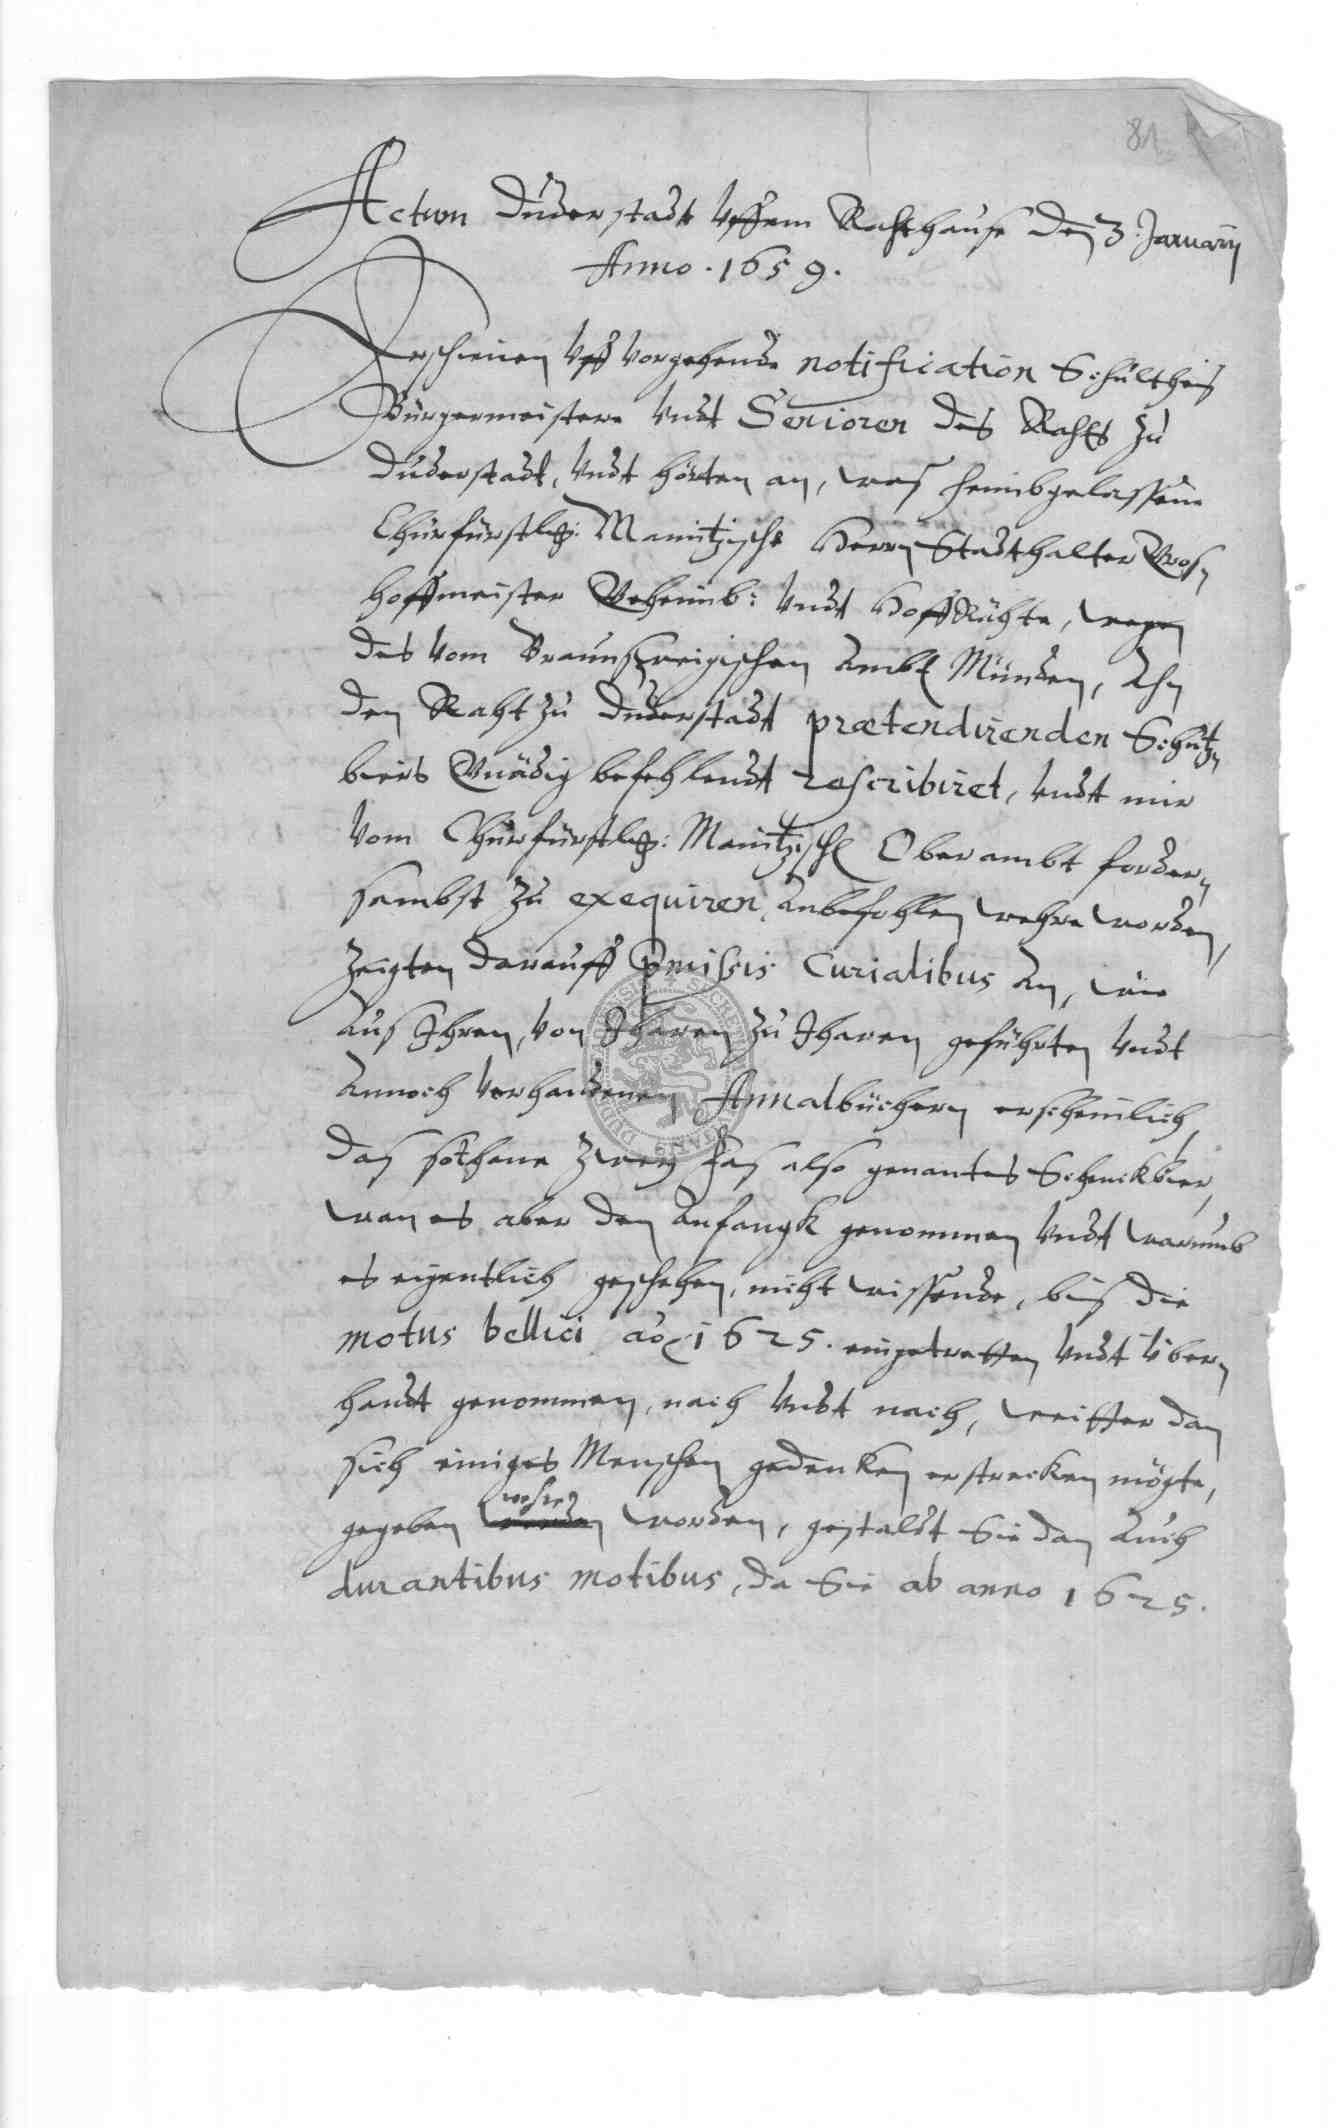 81
Actum Duderstadt Vffem Rahthause den 3. January
Anno . 1659 .
Erschienen Vff vorgehende notification Schultheis
Bürgermeistere Undt Senioren des Rahts zu
Duderstadt, Undt hörten an, was heimbgelassene
Churfürstlg: Maintzische Herrn Stadthalter Gros,
hoffmeister Geheimb: Undt Hoff Rähte, wegen
des vom Braunschweigischen Ambt Münden, Ahn
den Raht zu Duderstadt prætendirenden Schutz,
biers Gnädig befehlendt rescribiret, Undt mir
vom Churfürstlg: Maintzisch Oberambt forder,
sambst zu exequiren, Anbefohlen wehre worden,
Zeigten darauff pmissis Curialibus An, wie
Aus Ihren, von Jharen zu Jharen geführten Undt
Annoch vorhandenen Annalbüchern erscheinlich,
das sothane zwey Fas also genantes Schenckbier,
wan es aber den Anfangk genommen Undt warumb
es eigentlich geschehen, nicht wissende, bis die
motus bellici aõ 1625. eingetretten Undt Über,
handt genommen, nach Undt nach, weitter dan
sich einiges Menschen gedencken erstrecken mögte,
wehre
gegeben worden, gestaldt Sie dan Auch
durantibus motibus, da Sie ab anno 1625.